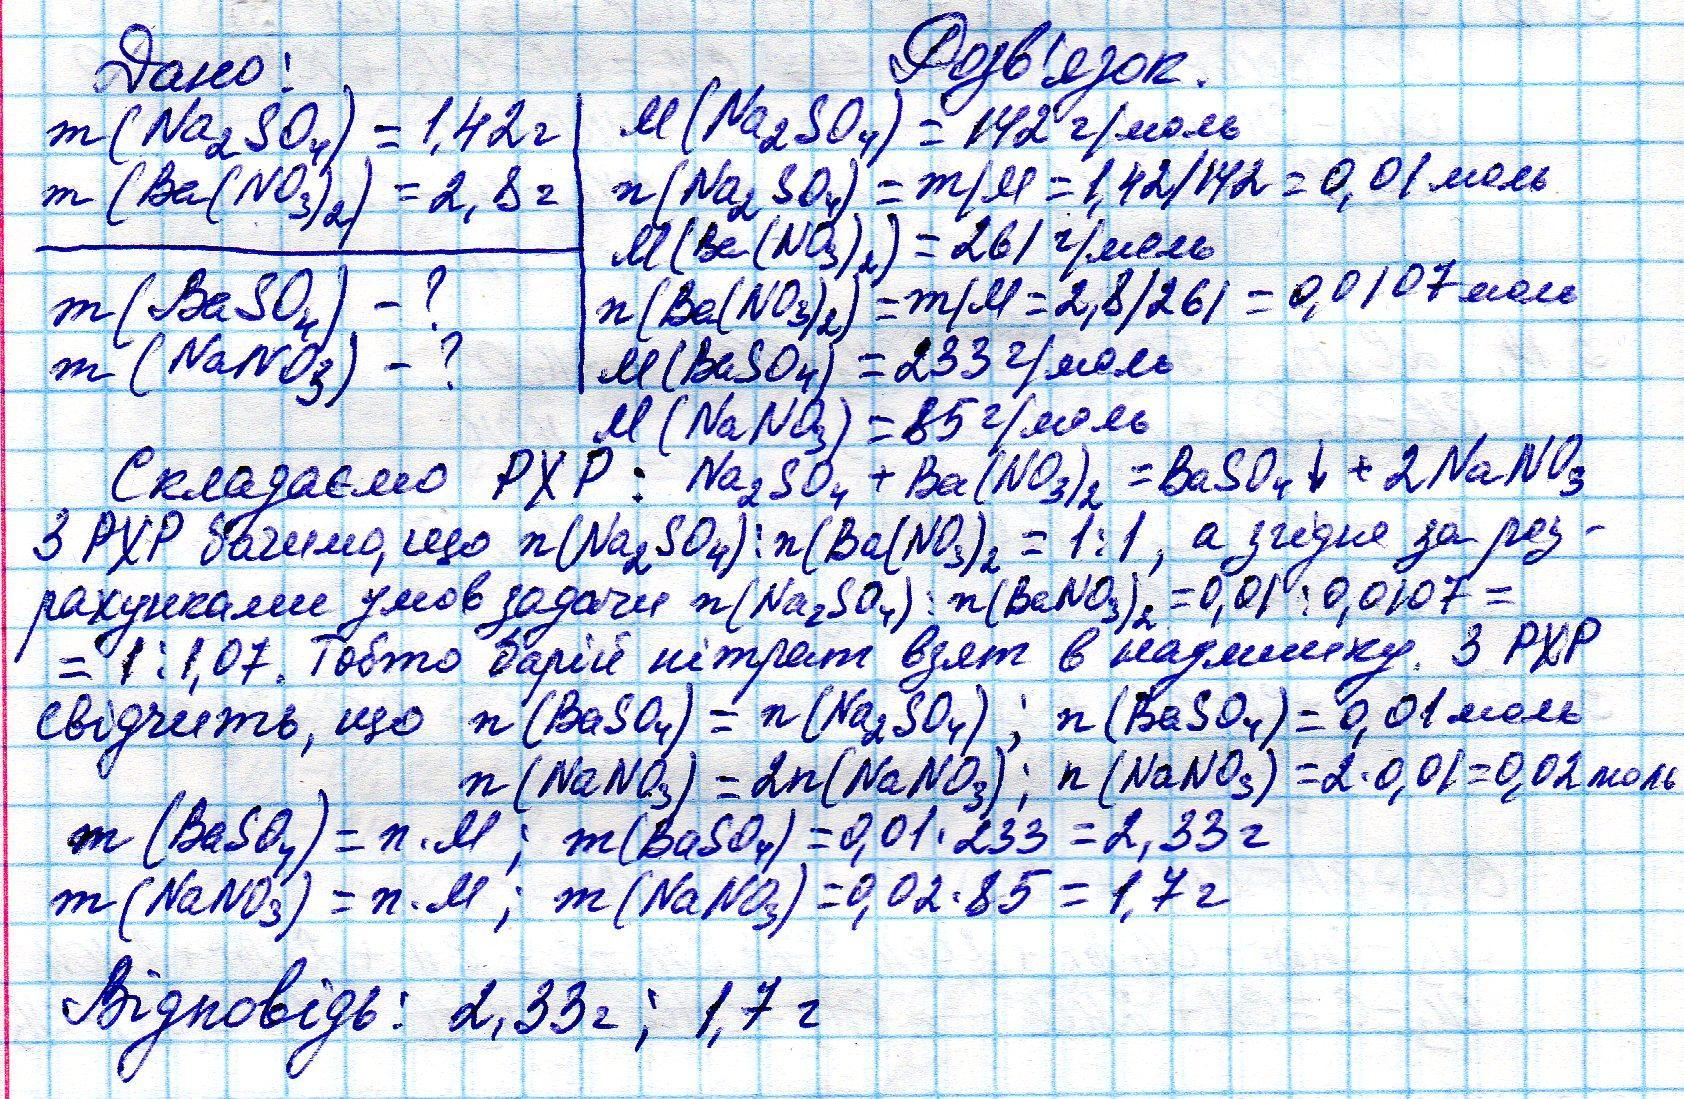 Дано:
m(Na₂SO₄) = 1,42 г
m(Ba(NO₃)₂) = 2,8 г
m(BaSO₄) - ?
m(NaNO₃) - ?
Розв'язок.
M(Na₂SO₄) = 142 г/моль
n(Na₂SO₄) = m/M = 1,42/142 = 0,01 моль
M(Ba(NO₃)₂) = 261 г/моль
n(Ba(NO₃)₂) = m/M = 2,8/261 = 0,0107 моль
M(BaSO₄) = 233 г/моль
M(NaNO₃) = 85 г/моль
Складаємо РХР: Na₂SO₄ + Ba(NO₃)₂ = BaSO₄↓ + 2NaNO₃
З РХР бачимо, що n(Na₂SO₄):n(Ba(NO₃)₂ = 1:1, а згідно за роз-
рахунками умов задачи n(Na₂SO₄):n(BaNO₃)₂ = 0,01:0,0107 =
= 1:1,07. Тобто барій нітрат взят в надлишку. З РХР
свідчить, що n(BaSO₄) = n(Na₂SO₄); n(BaSO₄) = 0,01 моль
n(NaNO₃) = 2n(NaNO₃); n(NaNO₃) = 2·0,01 = 0,02 моль
m(BaSO₄) = n·M; m(BaSO₄) = 0,01·233 = 2,33 г
m(NaNO₃) = n·M; m(NaNO₃) = 0,02·85 = 1,7 г
Відповідь: 2,33 г; 1,7 г